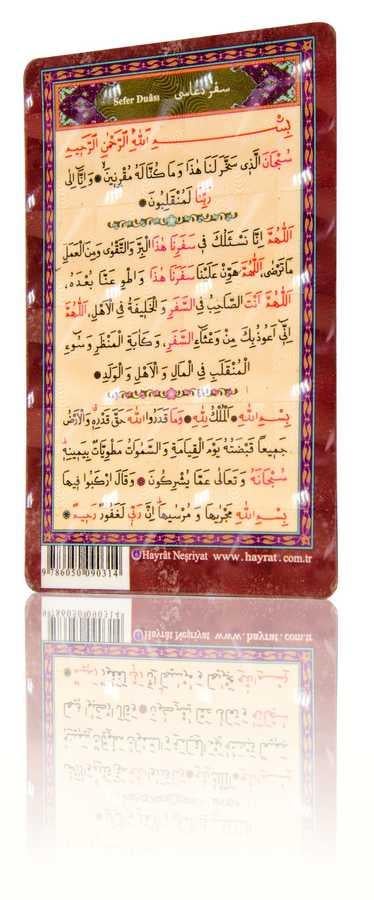 Sefer Duâsı سفر دعاسی
بِسْمِ اللّٰهِ الرَّحْمٰنِ الرَّحِيمِ
سُبْحَانَ الَّذِى سَخَّرَ لَنَا هٰذَا وَمَا كُنَّا لَهُ مُقْرِنِينَ ● وَاِنَّا اِلٰى
رَبِّنَا لَمُنْقَلِبُونَ ●
اَللّٰهُمَّ اِنَّا نَسْئَلُكَ فِى سَفَرِنَا هٰذَا الْبِرَّ وَالتَّقْوٰى وَمِنَ الْعَمَلِ
مَا تَرْضٰى، اَللّٰهُمَّ هَوِّنْ عَلَيْنَا سَفَرَنَا هٰذَا وَاطْوِ عَنَّا بُعْدَهُ،
اَللّٰهُمَّ اَنْتَ الصَّاحِبُ فِى السَّفَرِ وَالْخَلِيفَةُ فِى الْاَهْلِ، اَللّٰهُمَّ
اِنِّى اَعُوذُ بِكَ مِنْ وَعْثَاءِ السَّفَرِ، وَكَابَةِ الْمَنْظَرِ وَسُوءِ
الْمُنْقَلَبِ فِى الْمَالِ وَالْاَهْلِ وَالْوَلَدِ ●
بِسْمِ اللّٰهِ ● اَلْمُلْكُ لِلّٰهِ ● وَمَا قَدَرُوا اللّٰهَ حَقَّ قَدْرِهِ وَالْاَرْضُ
جَمِيعًا قَبْضَتُهُ يَوْمَ الْقِيَامَةِ وَالسَّمٰوَاتُ مَطْوِيَّاتٌ بِيَمِينِهِ
سُبْحَانَهُ وَتَعَالٰى عَمَّا يُشْرِكُونَ ● وَقَالَ ارْكَبُوا فِيهَا
بِسْمِ اللّٰهِ مَجْرٰيهَا وَمُرْسٰيهَا اِنَّ رَبِّى لَغَفُورٌ رَحِيمٌ ●
Hayrât Neşriyat www.hayrat.com.tr
9 786050 090314